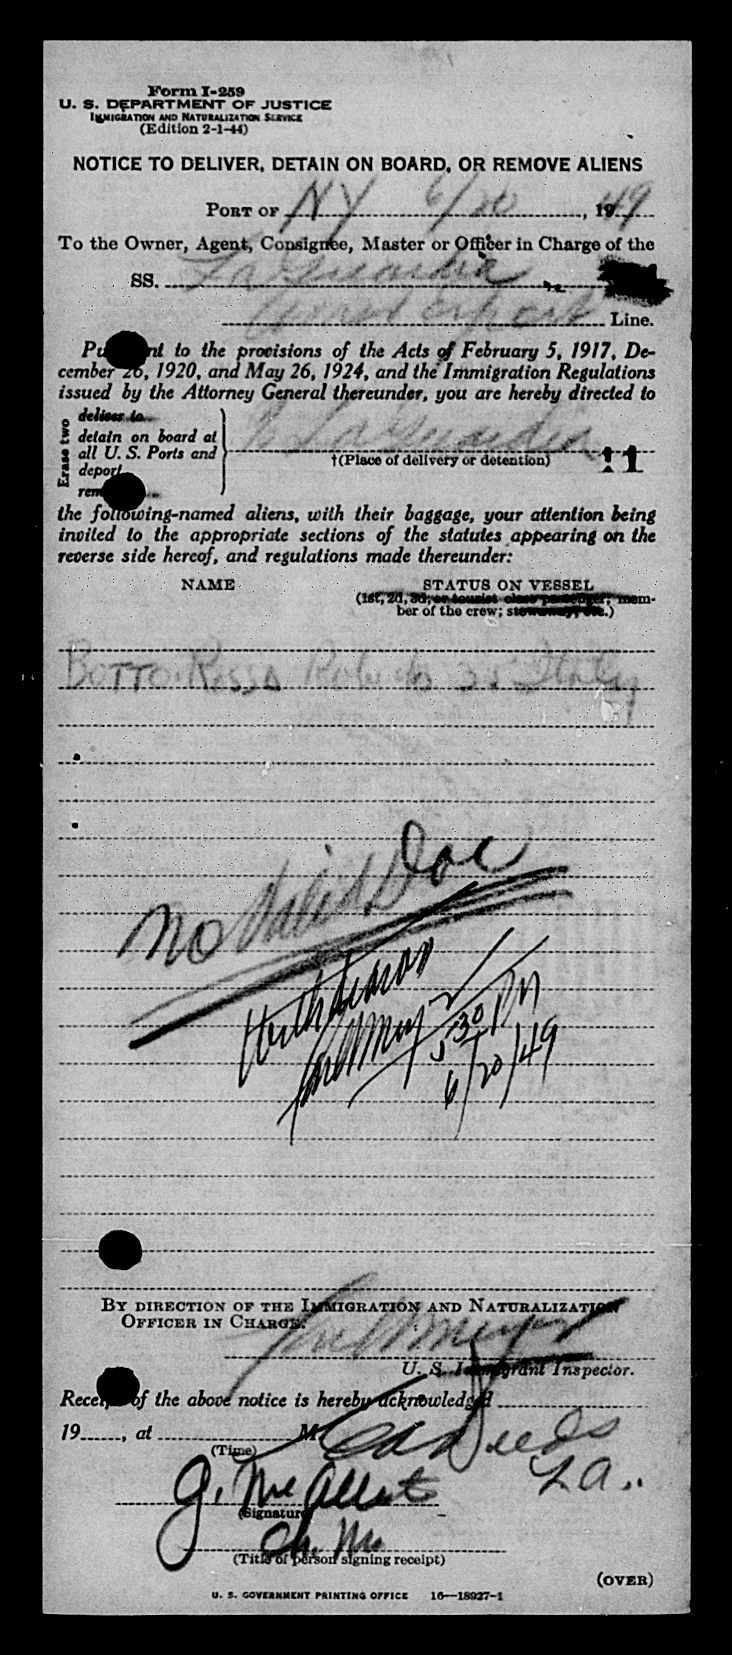 Form I-259
U. S. DEPARTMENT OF JUSTICE
IMMIGRATION AND NATURALIZATION SERVICE
(Edition 2-1-44)
NOTICE TO DELIVER, DETAIN ON BOARD, OR REMOVE ALIENS
PORT OF NY 6/20, 1949
To the Owner, Agent, Consignee, Master or Officer in Charge of the
SS. La Guardia
Amer Export Line.
nt to the provisions of the Acts of February 5, 1917, De-
cember 26, 1920, and May 26, 1924, and the Immigration Regulations
issued by the Attorney General thereunder, you are hereby directed to
Erase two
deliver to
detain on board at
all U. S. Ports and
deport
La Guardia
†(Place of delivery or detention)
the following-named aliens, with their baggage, your attention being
invited to the appropriate sections of the statutes appearing on the
reverse side hereof, and regulations made thereunder:
NAME STATUS ON VESSEL
(1st, 2d, 3d, or tourist class passenger; mem-
ber of the crew; stowaway, etc.)
BOTTO-ROSSA Italy
no Valid Doc
5:30 PM
6/20/49
BY DIRECTION OF THE IMMIGRATION AND NATURALIZATION
OFFICER IN CHARGE:
U. S. Immigrant Inspector.
Receipt of the above notice is hereby acknowledged
19, at M
(Time)
(Signature)
(Title of person signing receipt)
(OVER)
U. S. GOVERNMENT PRINTING OFFICE 16—18927-1